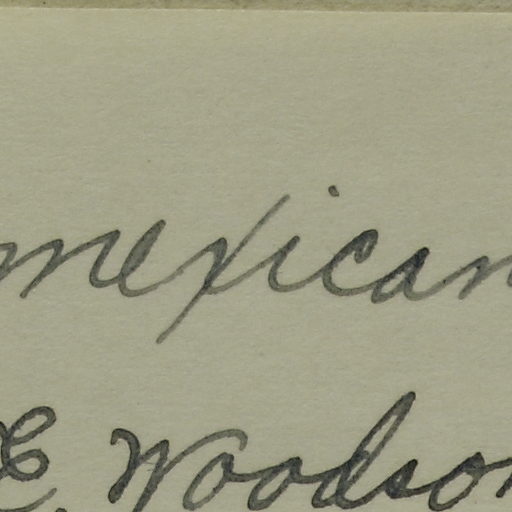 mexican
E. Woodson